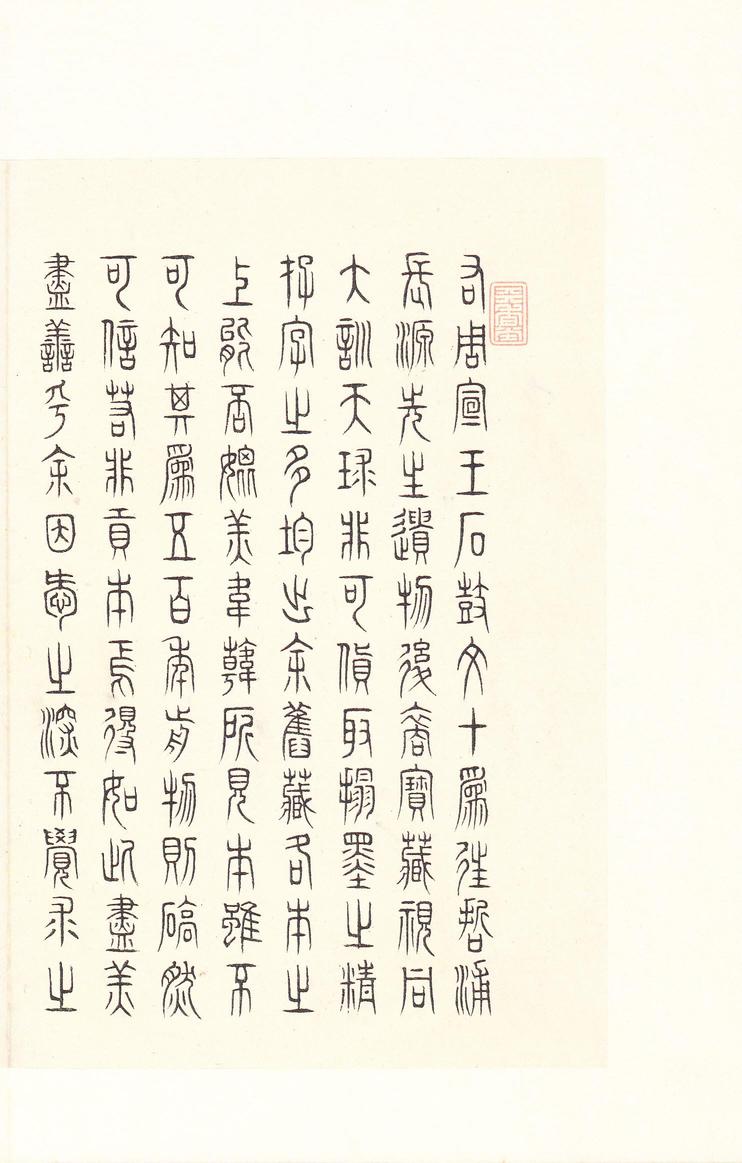 右周宣王石鼓文十為徃哲浦
長源先生遺物後裔寶藏視同
大訓天球非可貨取搨墨之精
存字之多均出余舊藏各本之
上能否媲美韋韓所見本雖不
可知其為五百年前物則碻然
可信若非貢本焉得如此盡美
盡善乎余因愛之深不覺求之